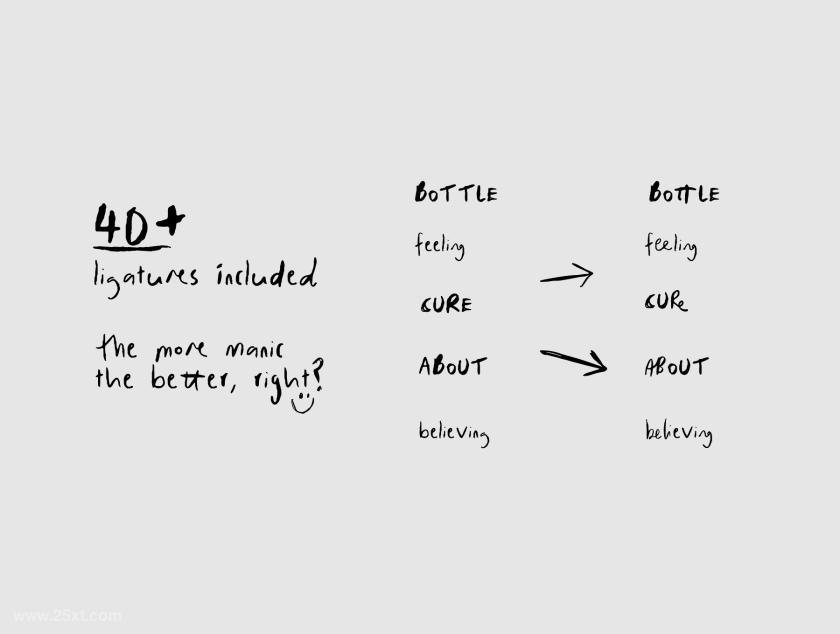 40+
ligatures included
the more manic
the better, right?
BOTTLE
feeling
CURE
ABOUT
believing
BOTTLE
feeling
CURe
ABOUT
believing
www.25xt.com